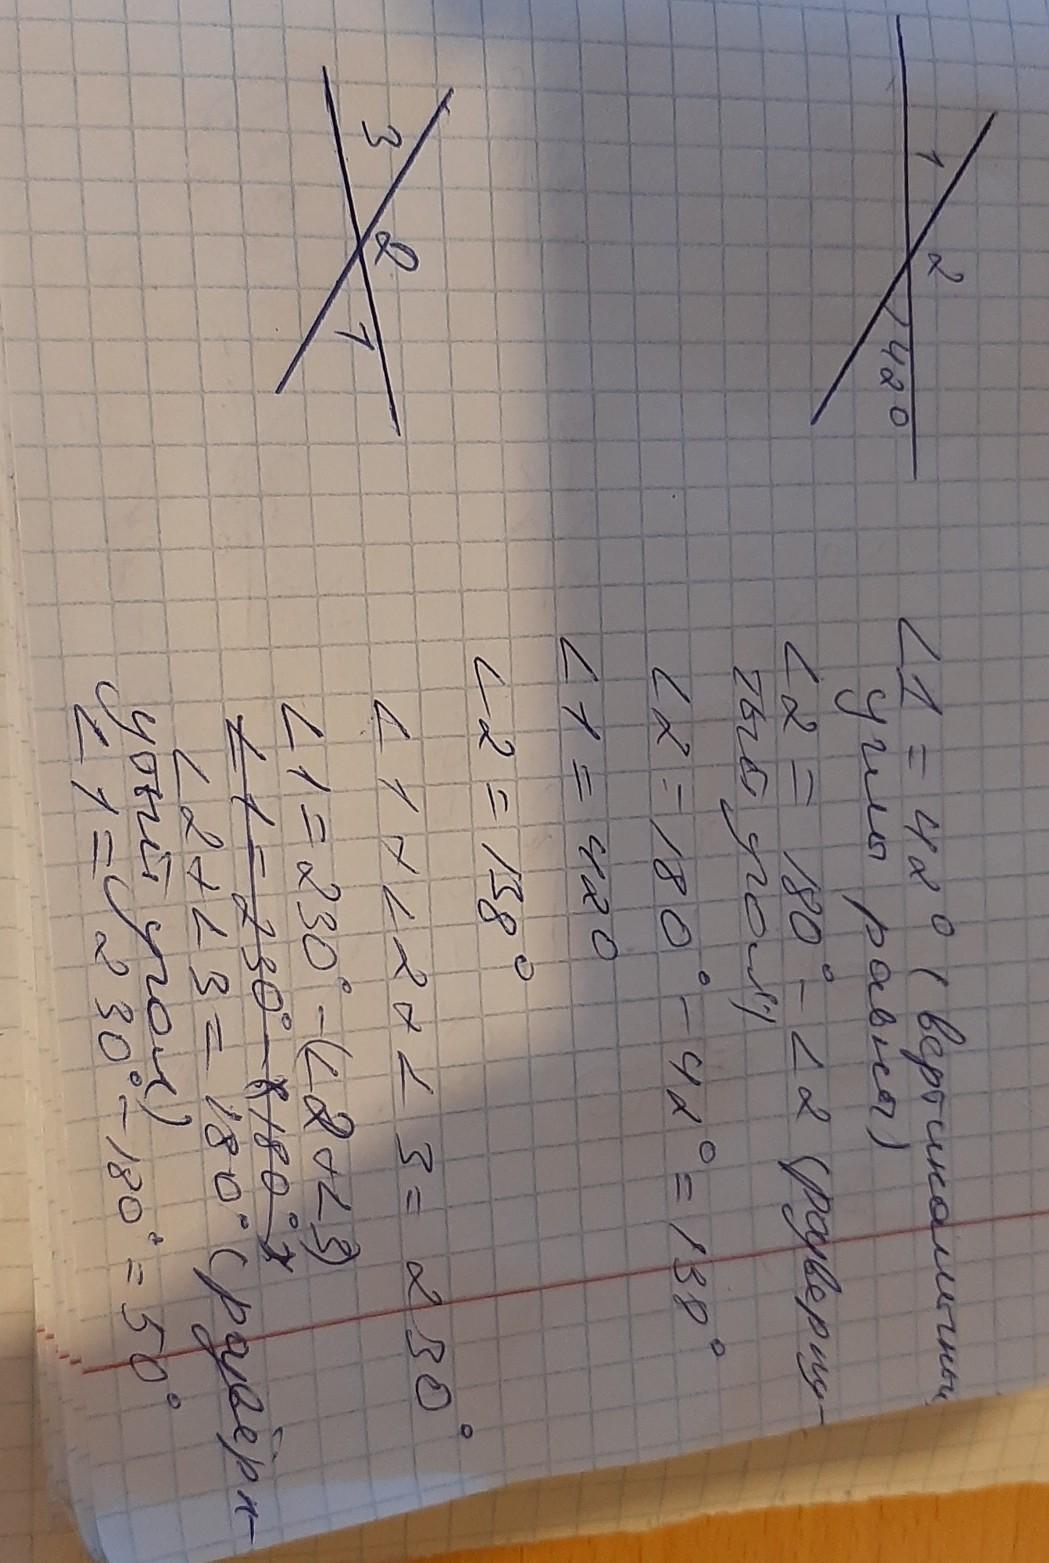 1
2
42°
∠1 = 42° (вертикальный
углы равны)
∠2 = 180° - ∠2 (развёрну-
тый угол)
∠2 = 180° - 42° = 138°
∠1 = 42°
∠2 = 138°
3
2
1
∠1 + ∠2 + ∠3 = 230°
∠1 = 230° - (∠2 + ∠3)
∠1 = 230° - 180°
∠2 + ∠3 = 180° (развёрн-
утый угол)
∠1 = 230° - 180° = 50°